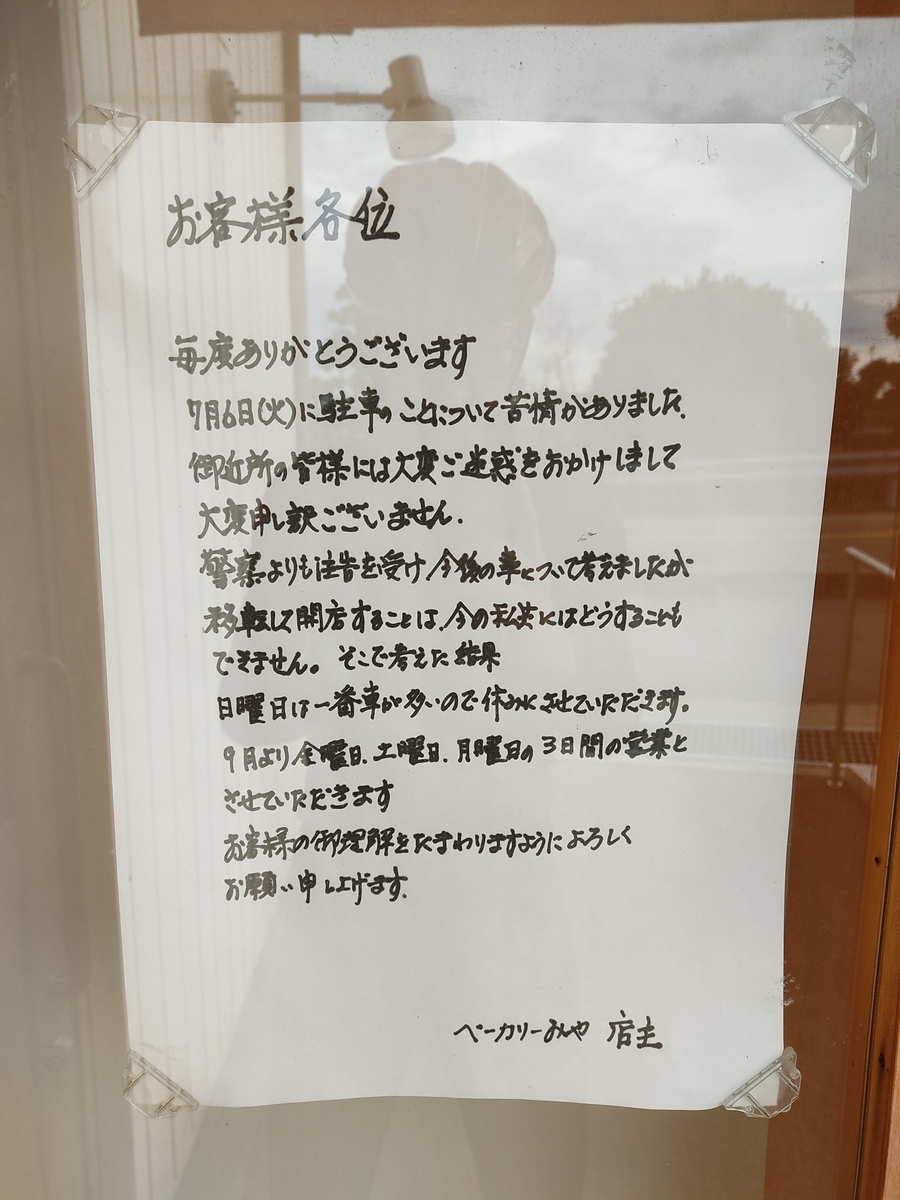 お客様各位
毎度ありがとうございます
7月6日(火)に駐車のことについて苦情がありました。
御近所の皆様には大変ご迷惑をおかけしまして
大変申し訳ございません.
警察よりも注告を受け今後の事について考えましたが
移転して開店することは、今の私共にはどうすることも
できません。そこで考えた結果
日曜日は一番車が多いので休みにさせていただきます。
9月より金曜日.土曜日.月曜日の3日間の営業と
させていただきます
お客様の御理解をたまわりますようによろしく
お願い申し上げます.
ベーカリーみや 店主